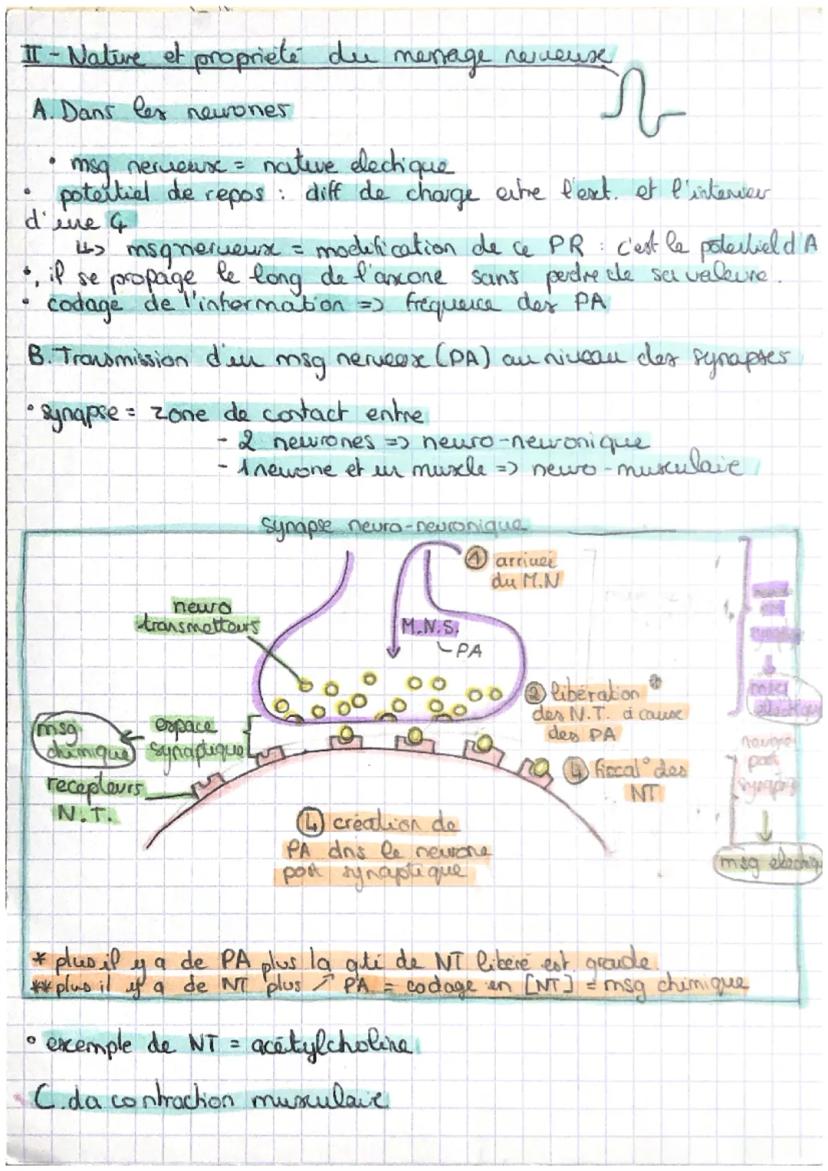 II - Nature et propriété du message nerveux
A. Dans les neurones
• msg nerveux = nature electique
• potentiel de repos : diff de charge entre l'ext. et l'interieur
d'une C
↳ msg nerveux = modification de ce PR : c'est le potentiel d'A
•, il se propage le long de l'axone sans perdre de sa valeure.
• codage de l'information => fréquence des PA
B. Transmission d'un msg nerveux (PA) au niveau des synapses
• synapse = zone de contact entre
- 2 neurones => neuro-neuronique
- 1 neurone et un muscle => neuro-musculaire
Synapse neuro-neuronique
① arrivée
du M.N
neuro
transmetteurs
M.N.S.
PA
② libération *
des N.T. à cause
des PA
msg
chimique
espace
synaptique
recepteurs
N.T.
④ fixat° des
NT
④ création de
PA dns le neurone
post synaptique
msg
post
msg electriq
* plus il y a de PA plus la qté de NT libéré est grande.
** plus il y a de NT plus ↗ PA = codage en [NT] = msg chimique
• exemple de NT = acétylcholine
C. La contraction musculaire